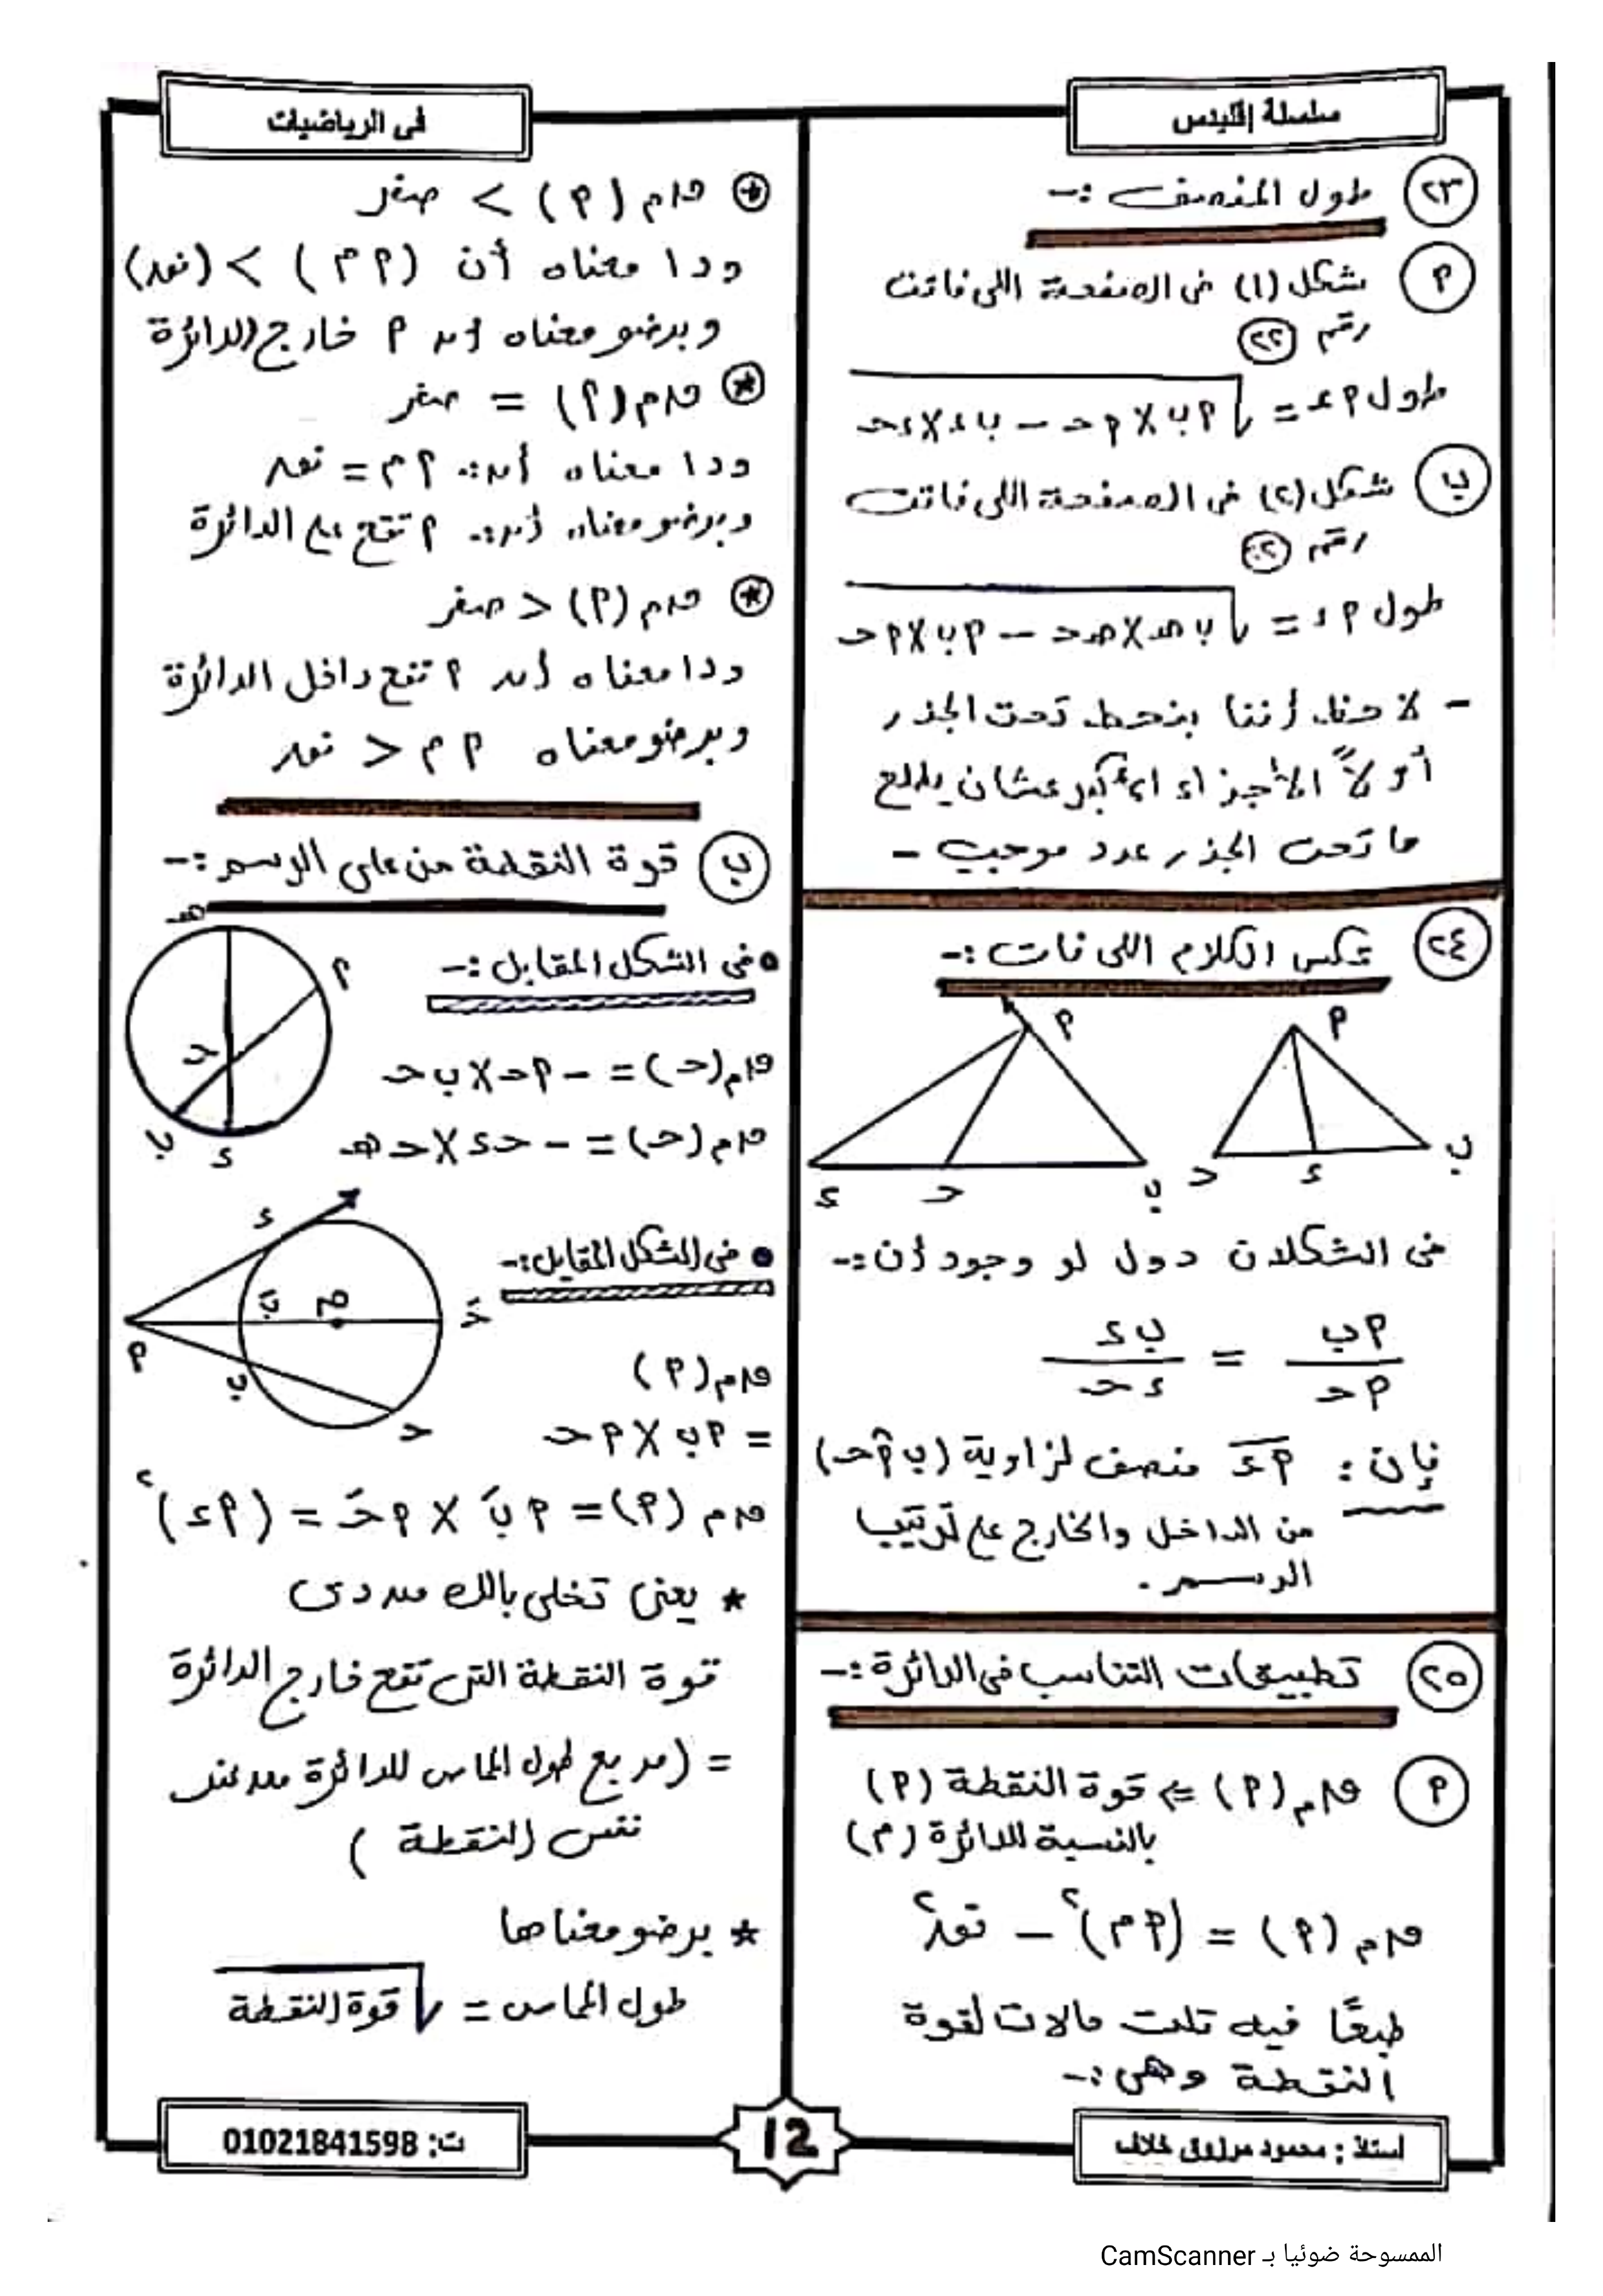 سلسلة إقليدس
فى الرياضيات
٢٣ طول المنصف :-
٩ شكل (١) فى الصفحة اللى فاتت
رقم ٢٢
طول ٩ء = √ ٩ب × ٩حـ - بء × ءحـ
ب شكل (٢) فى الصفحة اللى فاتت
رقم
طول ٩ء = √ بء × ءحـ - ٩ب × ٩حـ
- لاحظ أننا بنحط تحت الجذر
أولاً الأجزاء الأكبر عشان يطلع
ما تحت الجذر عدد موجب -
٢٤ عكس الكلام اللى فات :-
٩
ب
ء
حـ
٩
ب
حـ
ء
فى الشكلان دول لو وجود أن :-
٩ب / ٩حـ = بء / ءحـ
فإن : ٩ء منصف لزاوية (ب٩حـ)
من الداخل والخارج على ترتيب
الرسم .
٢٥ تطبيقات التناسب فى الدائرة :-
٩ فهم (٩) ⇐ قوة النقطة (٩)
بالنسبة للدائرة (م)
فهم (٩) = (٩م)² - نفه²
طبعًا فيه تلت حالات لقوة
النقطة وهى :-
فهم (٩) > صفر
ودا معناه أن (٩م) > (نفه)
وبرضو معناه أن ٩ خارج الدائرة
فهم (٩) = صفر
ودا معناه أن ٩م = نفه
وبرضو معناه أن ٩ تقع على الدائرة
فهم (٩) < صفر
ودا معناه أن ٩ تقع داخل الدائرة
وبرضو معناه ٩م < نفه
ب قوة النقطة من على الرسم :-
هـ
٩
حـ
ب
ء
• فى الشكل المقابل :-
فهم (حـ) = - ٩حـ × بحـ
فهم (حـ) = - حء × حهـ
• فى الشكل المقابل :-
ء
بَ
م
حَـ
٩
ب
حـ
فهم (٩)
= ٩ب × ٩حـ
فهم (٩) = ٩بَ × ٩حَـ = (٩ء)²
* يعنى تخلى بالك من دى
قوة النقطة التى تقع خارج الدائرة
= (مربع طول المماس للدائرة من عند
نفس النقطة )
* برضو معناها
طول المماس = √ قوة النقطة
أستاذ : محمود مرزوق خلاف
12
ت: 01021841598
الممسوحة ضوئيا بـ CamScanner